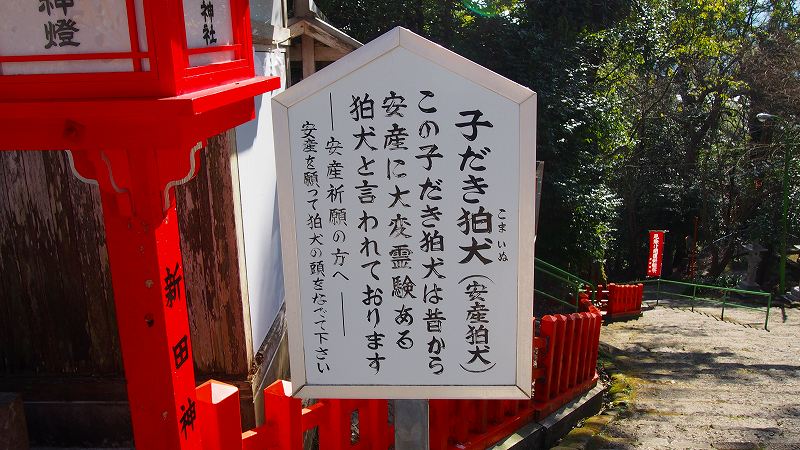 子だき狛犬(安産狛犬)
こまいぬ
この子だき狛犬は昔から
安産に大変霊験ある
狛犬と言われております
──安産祈願の方へ──
安産を願って狛犬の頭をなでて下さい
神燈
神社
新田神